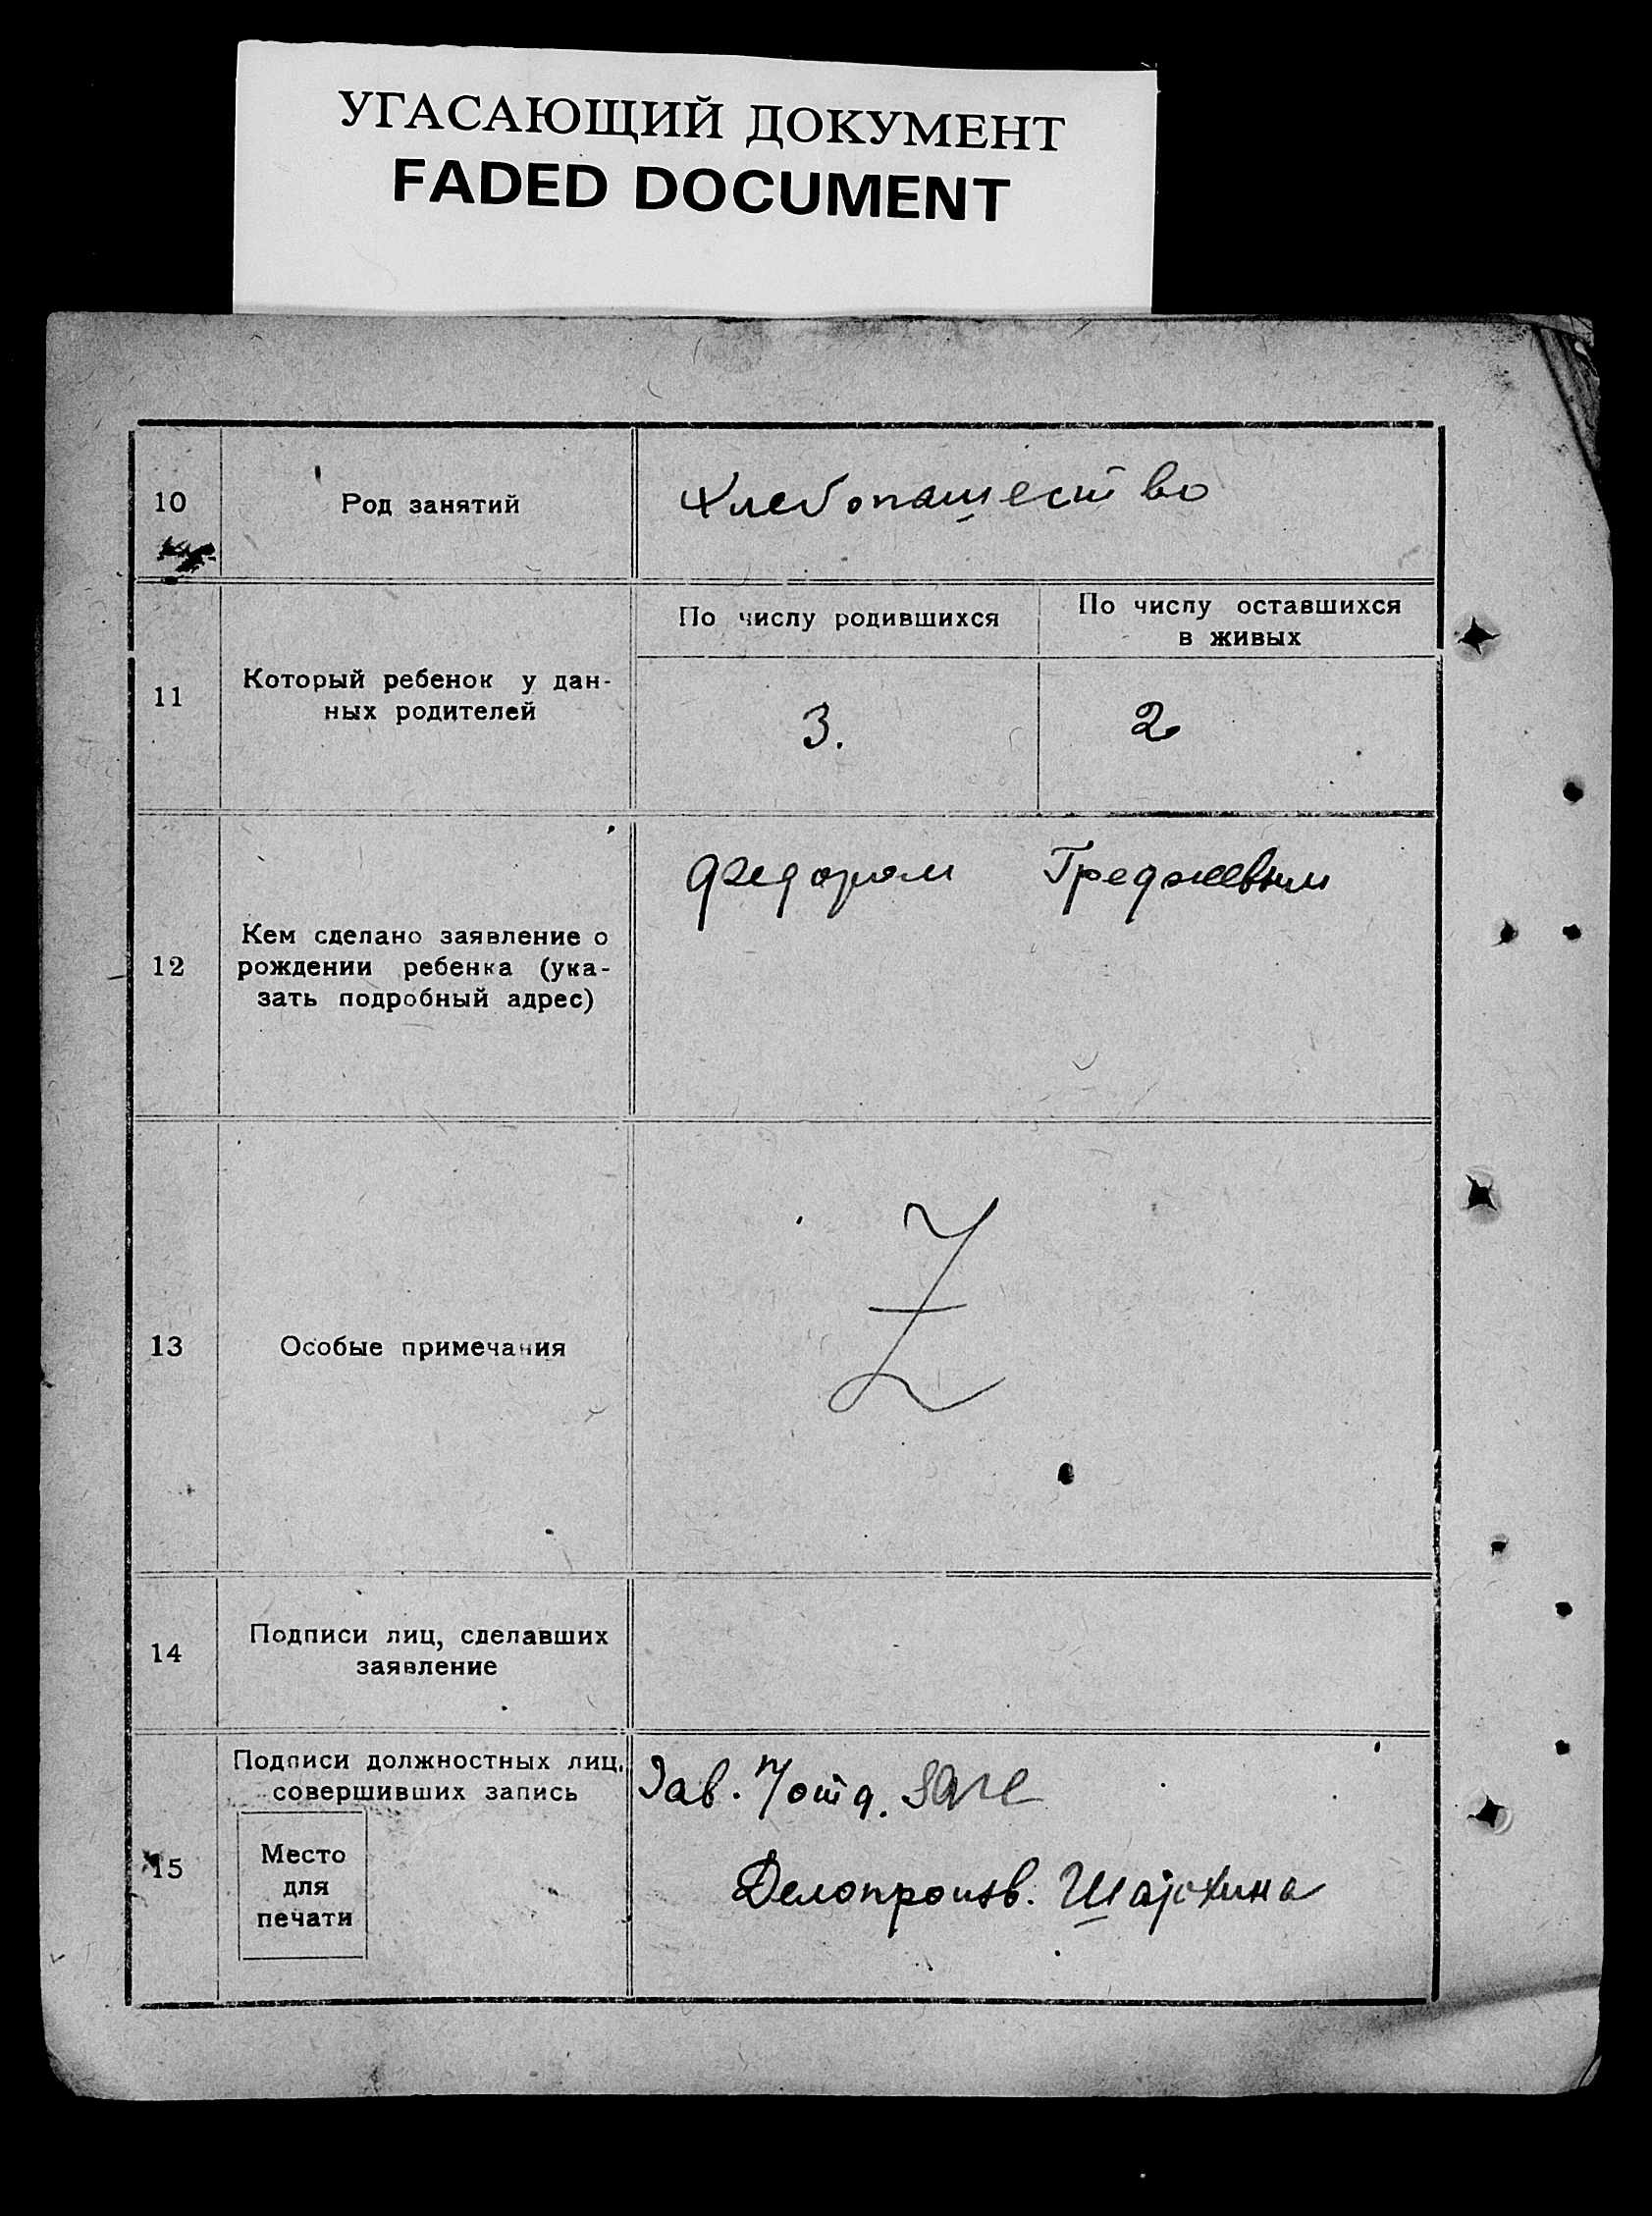 УГАСАЮЩИЙ ДОКУМЕНТ
FADED DOCUMENT
10
Род занятий
Хлебопашество
11
Который ребенок у дан-
ных родителей
По числу родившихся
По числу оставшихся
в живых
3.
2
12
Кем сделано заявление о
рождении ребенка (ука-
зать подробный адрес)
Федором
13
Особые примечания
Z
14
Подписи лиц, сделавших
заявление
15
Подписи должностных лиц,
совершивших запись
Место
для
печати
Зав.
Делопроизв.